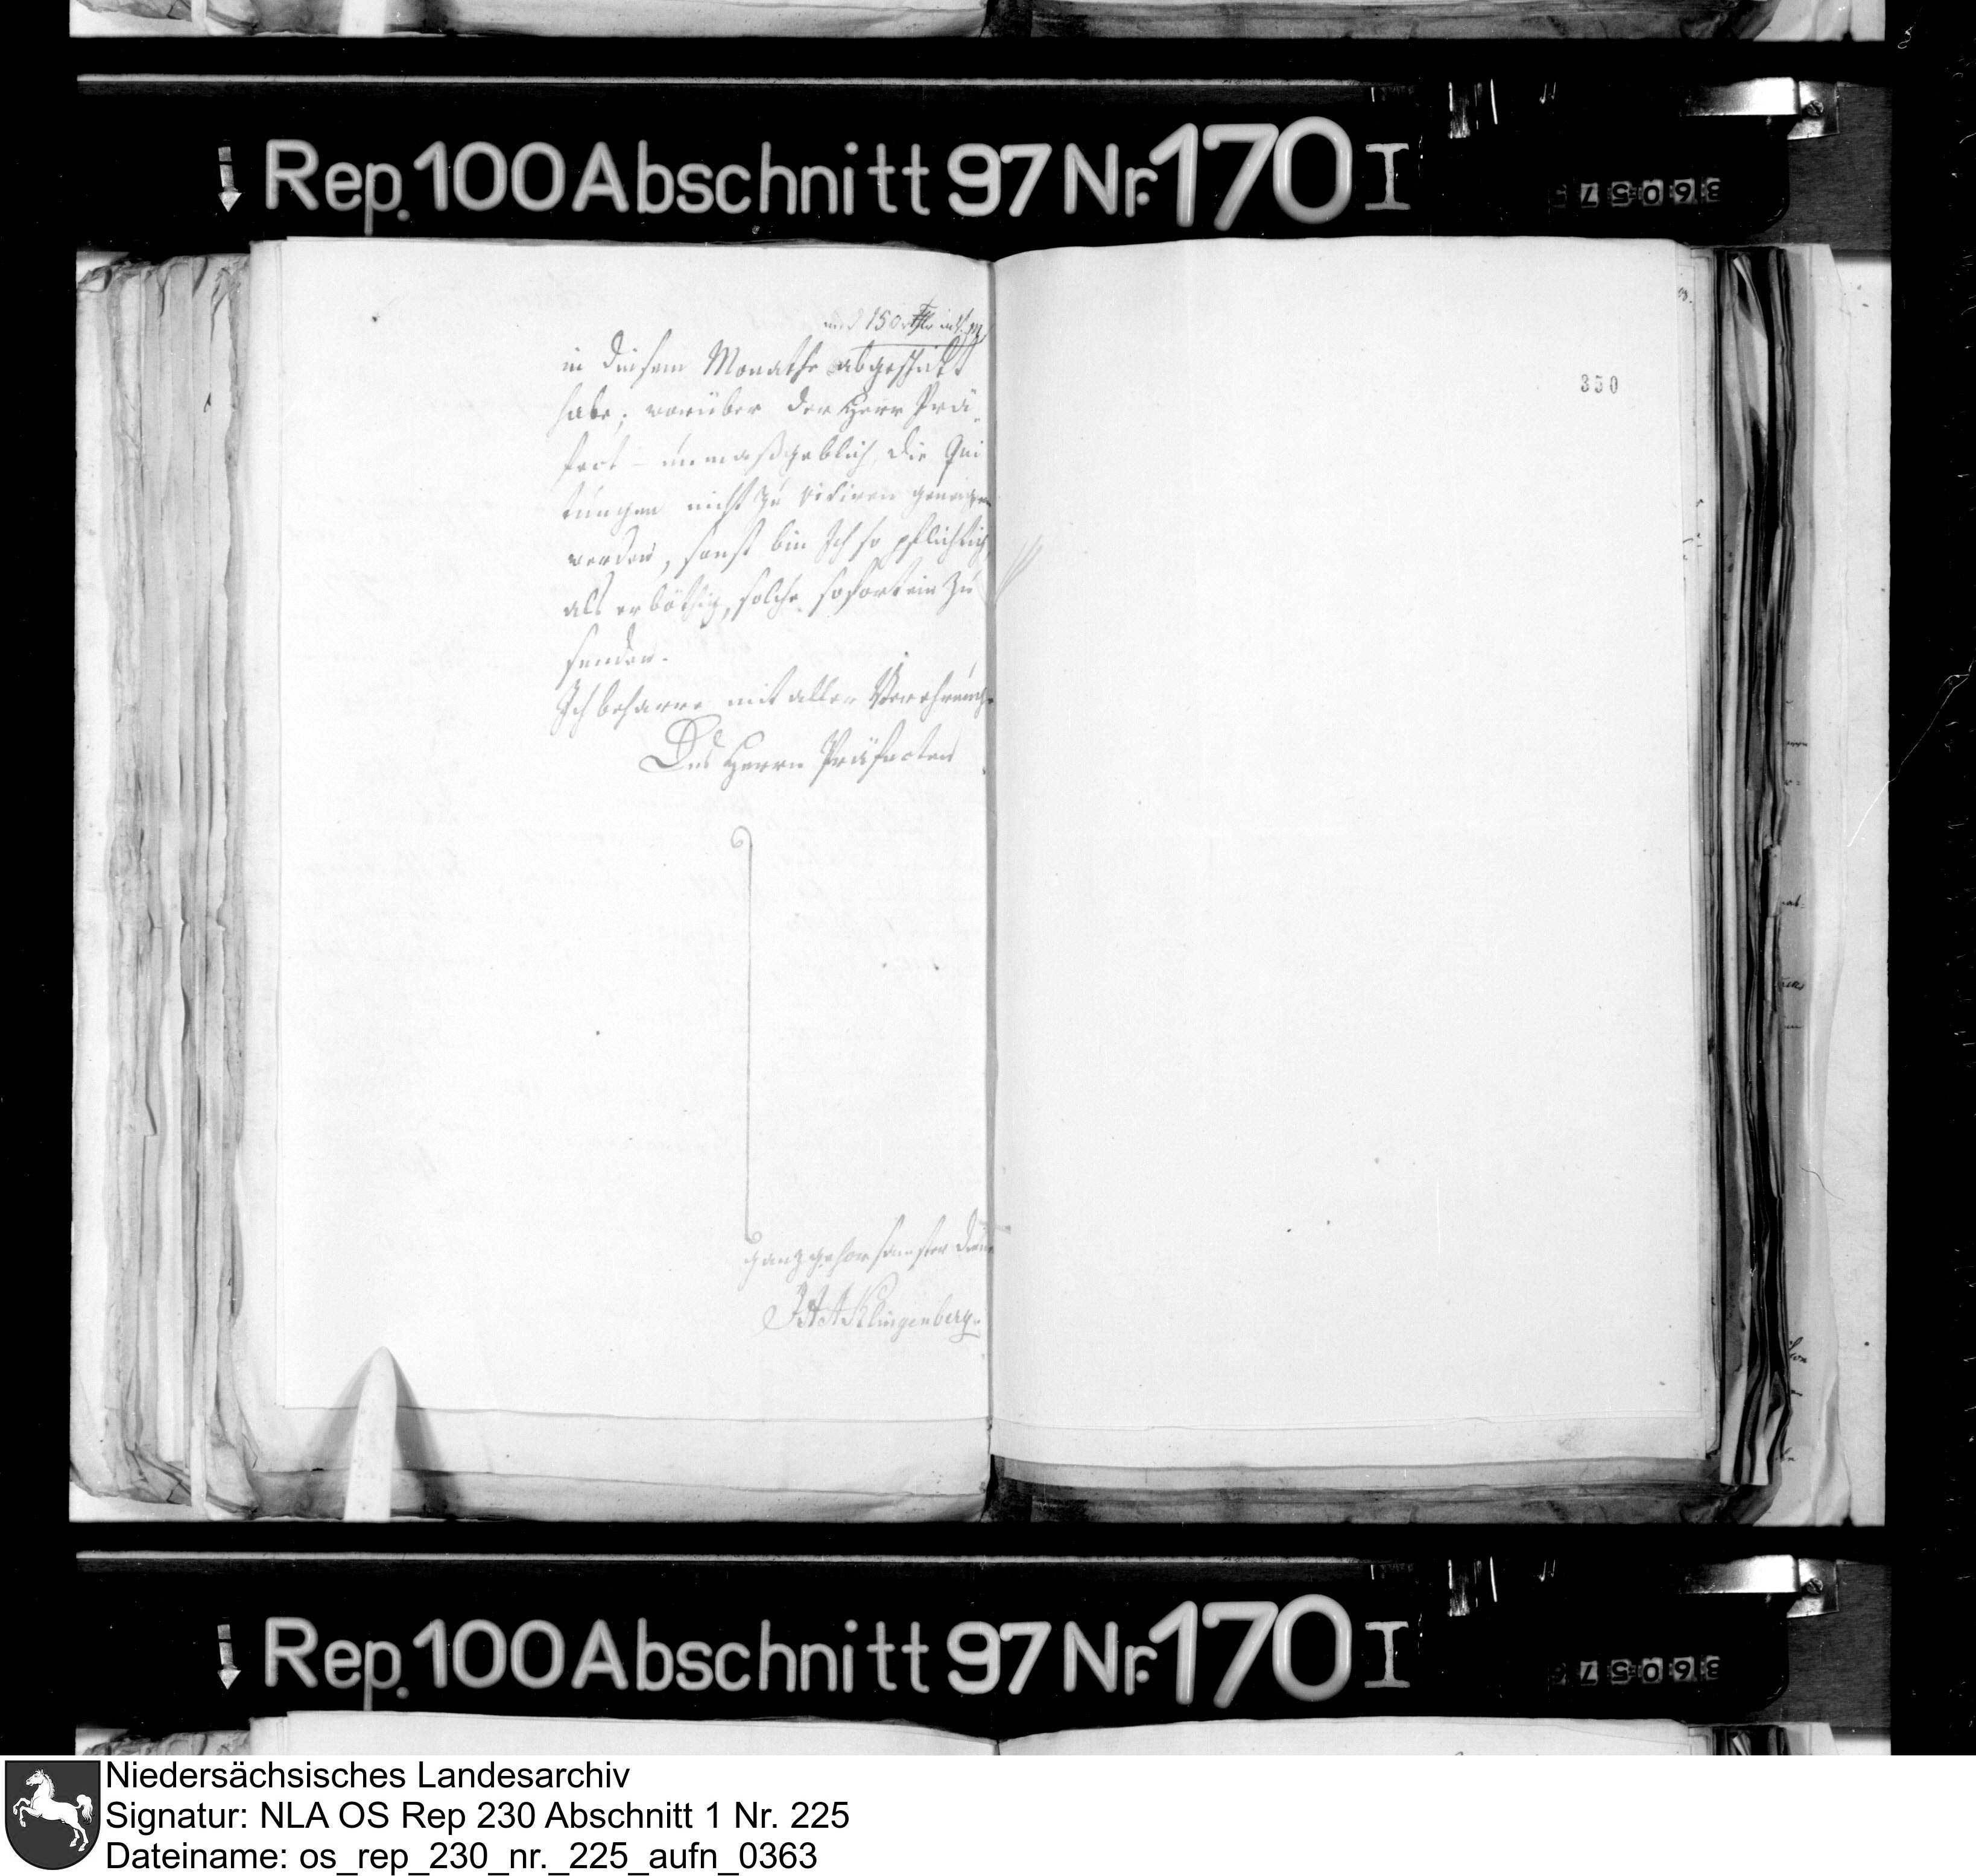 Rep. 100 Abschnitt 97 Nr. 170 I
36057
und 150 rthlr
in diesem Monathe abgeschickt
habe; worüber der Herr Prä-
fect - unmaßgeblich, die Qui
tungen nicht zu vidiren geneigen
werden, sonst bin Ich so pflichtig,
als erböthig, solche sofort ein zu
senden.
Ich beharre mit aller Verehrung.
Des Herrn Präfecten
ganz gehorsamster Diener
J A A Klingenberg.
350
Rep. 100 Abschnitt 97 Nr. 170 I
36057
Niedersächsisches Landesarchiv
Signatur: NLA OS Rep 230 Abschnitt 1 Nr. 225
Dateiname: os_rep_230_nr._225_aufn_0363